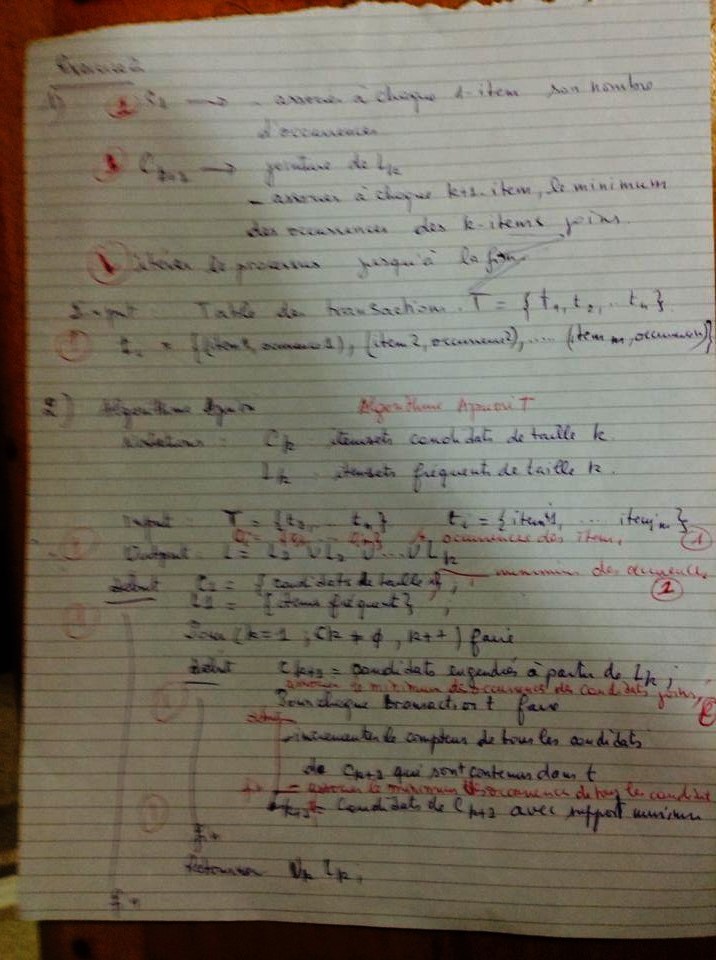 Exercice 2
1) 2 C1 → - associer à chaque 1-item son nombre
d'occurrences
3 Ck+1 → jointure de Lk
- associer à chaque k+1-item, le minimum
des occurrences des k-items joins.
itérer le processus jusqu'à la fin.
Input : Table des transactions T = { t1, t2, .. tn }.
= {(item1, occurrence1), (item2, occurrence2), .... (item m, occurrence m)}
2) Algorithme Apriori Algorithme Apriori T
Notations : Ck itemsets candidats de taille k.
Lk itemsets fréquents de taille k.
Input : T = {t1, ... tn} ti = {item1, ... item m}
occurrences des items 1
Output : L = L1 U L2 U ... U Lk
minimum des occurrences
Début C1 = {candidats de taille 1} ; 2
L1 = {items fréquent} ;
Pour (k=1 ; Ck ≠ ∅ , k++) faire
Début Ck+1 = candidats engendrés à partir de Lk ;
associer le minimum des occurrences des candidats joins,
Pour chaque transaction t faire
incrémenter le compteur de tous les candidats
de Ck+1 qui sont contenus dans t
= associer le minimum d'occurrence de tous les candidat
Lk+1 = candidats de Ck+1 avec support minimum
Retourner Uk Lk ;